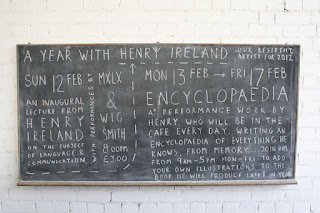 A YEAR WITH HENRY IRELAND
OUR RESIDENT
ARTIST FOR 2012
SUN 12 FEB
AN INAUGURAL
LECTURE FROM
HENRY
IRELAND
ON THE SUBJECT
OF LANGUAGE &
COMMUNICATION
WITH PERFORMANCES BY
MXLX
&
WIG
SMITH
8:00PM
£3.00
MON 13 FEB → FRI 17 FEB
ENCYCLOPAEDIA
A PERFORMANCE WORK BY
HENRY, WHO WILL BE IN THE
CAFE EVERY DAY. WRITING AN
ENCYCLOPAEDIA OF EVERYTHING HE
KNOWS FROM MEMORY... JOIN HIM
FROM 9AM-5PM MON-FRI TO ADD
YOUR OWN ILLUSTRATIONS TO THE
BOOK HE WILL PRODUCE LATER IN YEAR